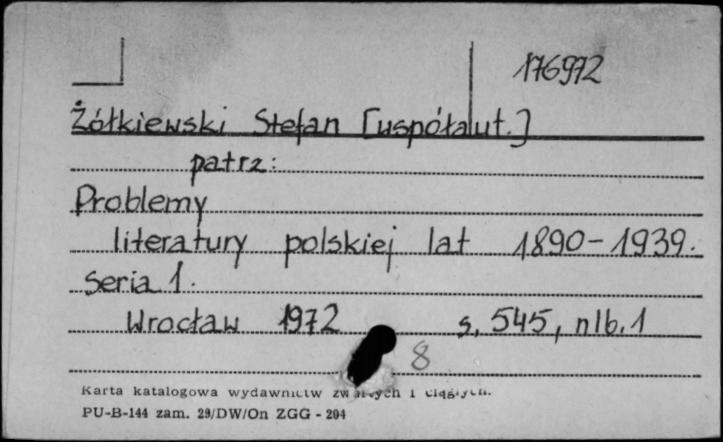 176972
Żółkiewski Stefan [współaut.]
patrz:
Problemy
literatury polskiej lat 1890-1939.
Seria 1.
Wrocław 1972 s. 545, nlb. 1
8
Karta katalogowa wydawnictw zwartych i ciągłych.
PU-B-144 zam. 29/DW/On ZGG - 204